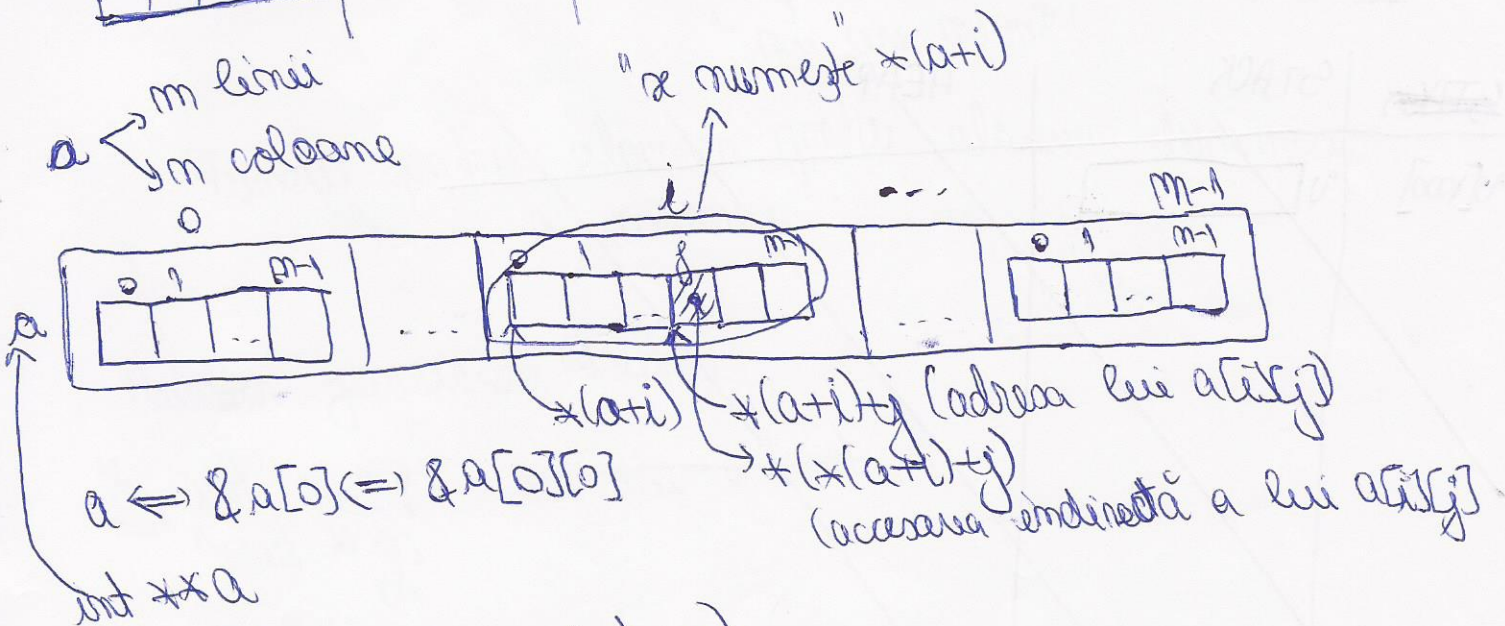 m linii
a
n coloane
"se numește" *(a+i)
0 i ... m-1
0 1 n-1
0 1 j n-1
0 1 n-1
a
.. ... ... x ... ..
*(a+i) *(a+i)+j (adresa lui a[i][j])
*(*(a+i)+j)
(accesarea indirectă a lui a[i][j]
a <=> &a[0] <=> &a[0][0]
int **a